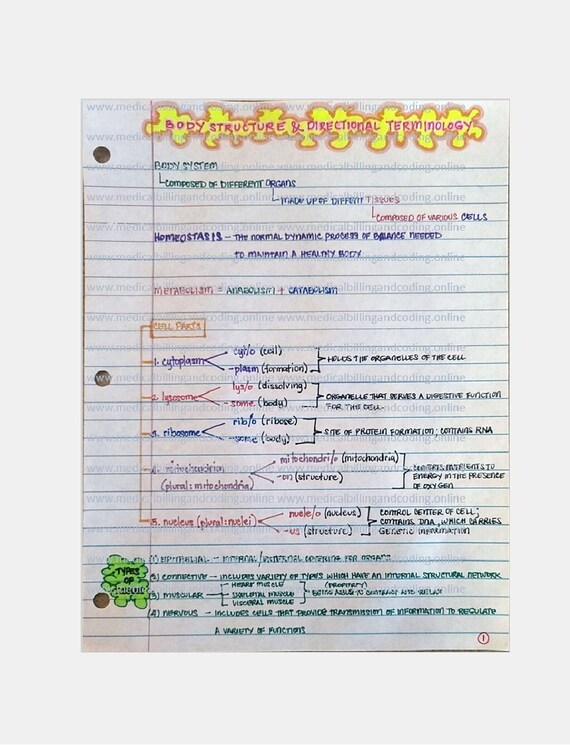 BODY STRUCTURE & DIRECTIONAL TERMINOLOGY
BODY SYSTEM
COMPOSED OF DIFFERENT ORGANS
MADE UP OF DIFFERENT TISSUES
COMPOSED OF VARIOUS CELLS
HOMEOSTASIS - THE NORMAL DYNAMIC PROCESS OF BALANCE NEEDED
TO MAINTAIN A HEALTHY BODY
METABOLISM = ANABOLISM + CATABOLISM
CELL PARTS
1. cytoplasm
cyt/o (cell)
-plasm (formation)
HOLDS THE ORGANELLES OF THE CELL
2. lysosome
lys/o (dissolving)
-some (body)
ORGANELLE THAT SERVES A DIGESTIVE FUNCTION
FOR THE CELL
3. ribosome
rib/o (ribose)
-some (body)
SITE OF PROTEIN FORMATION; CONTAINS RNA
4. mitochondrion
(plural: mitochondria)
mitochondri/o (mitochondria)
-on (structure)
CONVERTS NUTRIENTS TO
ENERGY IN THE PRESENCE
OF OXYGEN
5. nucleus (plural: nuclei)
nucle/o (nucleus)
-us (structure)
CONTROL CENTER OF CELL;
CONTAINS DNA, WHICH CARRIES
GENETIC INFORMATION
TYPES
OF
(1) EPITHELIAL - INTERNAL/EXTERNAL COVERING FOR ORGANS
(2) CONNECTIVE - INCLUDES VARIETY OF TYPES WHICH HAVE AN INTERNAL STRUCTURAL NETWORK
(3) MUSCULAR
- HEART MUSCLE
- SKELETAL MUSCLE
- VISCERAL MUSCLE
(PROPERTY)
BEING ABLE TO CONTRACT AND RELAX
(4) NERVOUS - INCLUDES CELLS THAT PROVIDE TRANSMISSION OF INFORMATION TO REGULATE
A VARIETY OF FUNCTIONS
1
www.medicalbillingandcoding.online